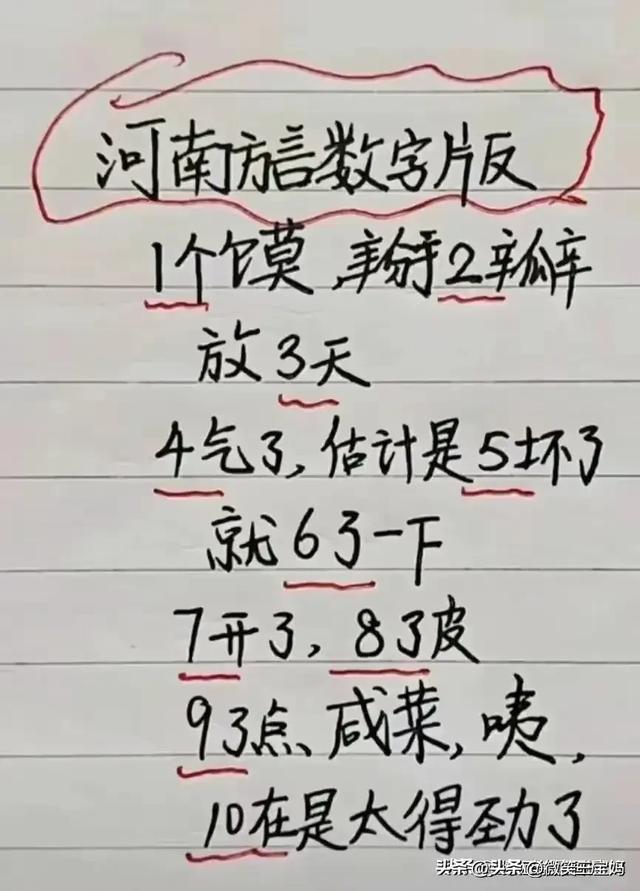 河南方言数字版
1个馍,掰2瓣
放3天
4气了,估计是5坏了
就63一下
7开了,83皮
93点咸菜,咦,
10在是太得劲了
头条@头条@微笑宝妈